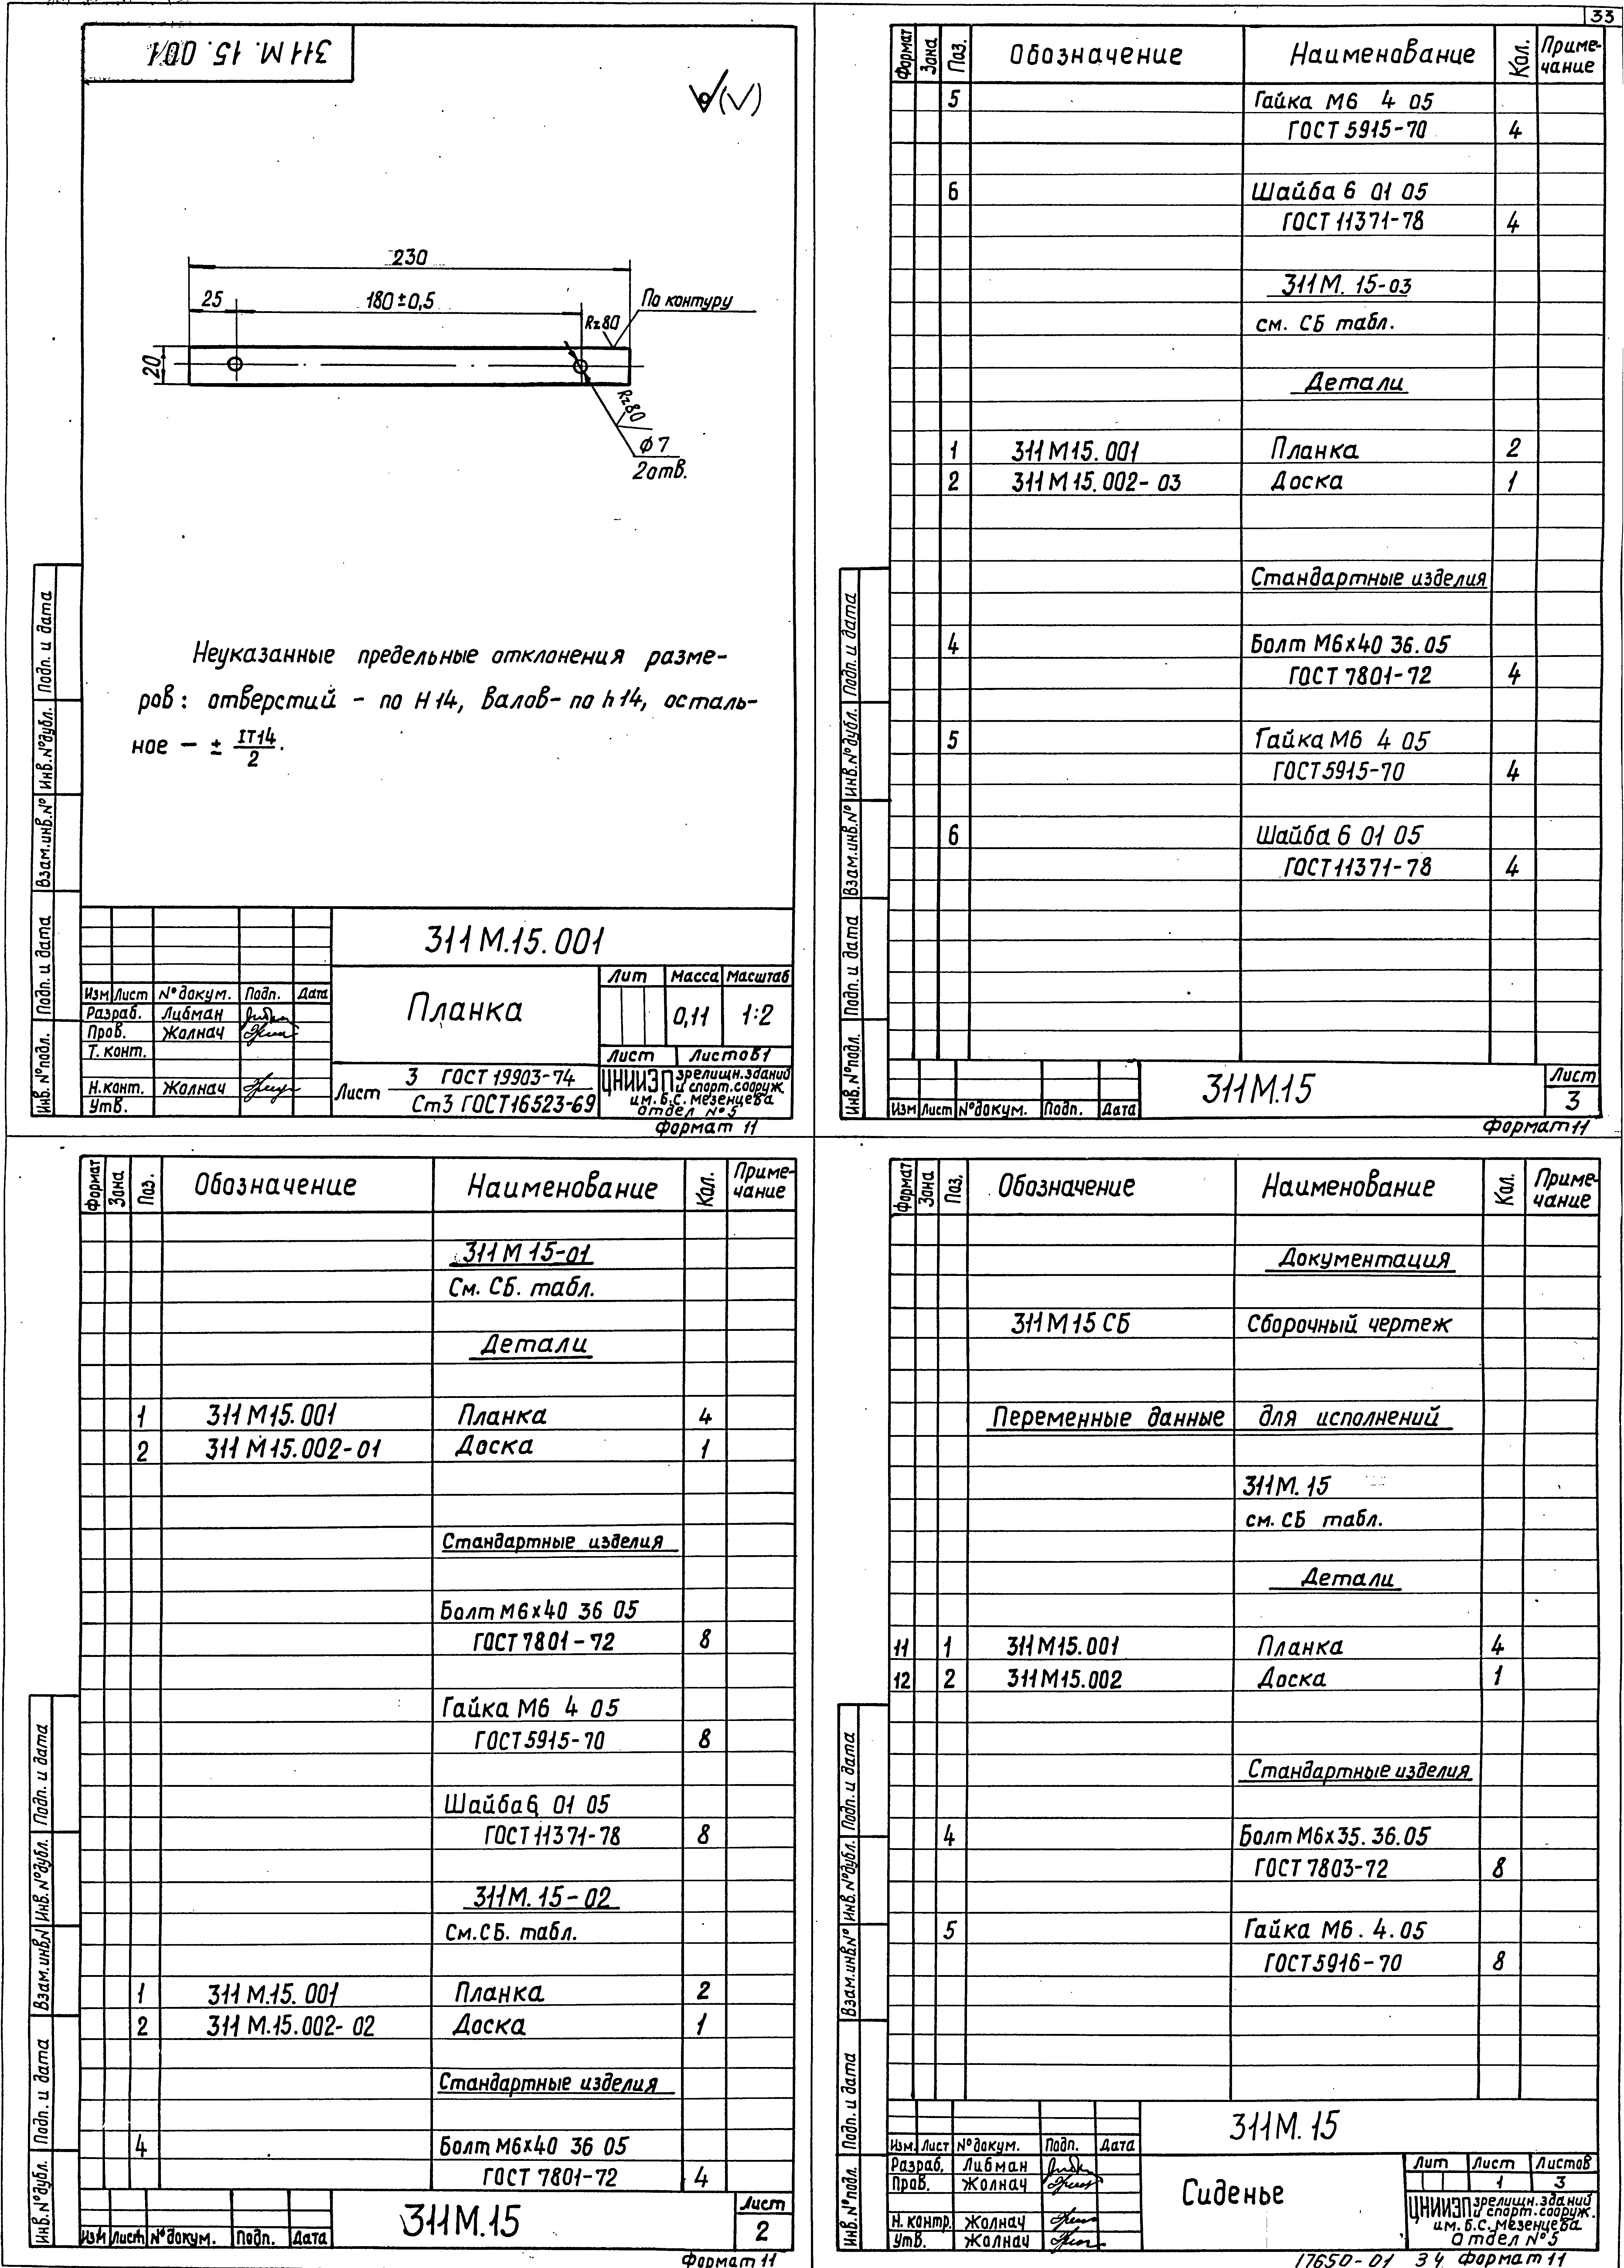 33
311М. 15. 001
(√)
230
25
180±0,5
По контуру
Rz80
20
Rz80
φ7
2отв.
Неуказанные предельные отклонения разме-
ров: отверстий - по H14, валов- по h14, осталь-
ное - ± IT14/2.
Инв.№подл. Подп. и дата Взам.инв.№ Инв.№дубл. Подп. и дата
311М.15.001
Изм Лист №докум. Подп. Дата
Разраб. Либман
Пров. Жолнач
Т. конт.
Н.конт. Жолнач
Утв.
Планка
Лит Масса Масштаб
0,11 1:2
Лист Листов 1
Лист 3 ГОСТ 19903-74
Ст3 ГОСТ16523-69
ЦНИИЭП зрелищн.зданий
и спорт.сооруж.
им. Б.С. Мезенцева
отдел №5
Формат 11
Формат Зона Поз. Обозначение Наименование Кол. Приме-
чание
5 Гайка М6 4 05
ГОСТ 5915-70 4
6 Шайба 6 01 05
ГОСТ 11371-78 4
311М. 15-03
см. СБ табл.
Детали
1 311М15.001 Планка 2
2 311М15.002-03 Доска 1
Стандартные изделия
4 Болт М6х40 36.05
ГОСТ 7801-72 4
5 Гайка М6 4 05
ГОСТ5915-70 4
6 Шайба 6 01 05
ГОСТ11371-78 4
Инв.№подл. Подп. и дата Взам.инв.№ Инв.№дубл. Подп. и дата
Изм Лист №докум. Подп. Дата
311М15
Лист
3
Формат 11
Формат Зона Поз. Обозначение Наименование Кол. Приме-
чание
311М 15-01
См. СБ. табл.
Детали
1 311М15.001 Планка 4
2 311М15.002-01 Доска 1
Стандартные изделия
Болт М6х40 36 05
ГОСТ 7801-72 8
Гайка М6 4 05
ГОСТ5915-70 8
Шайба 6 01 05
ГОСТ11371-78 8
311М. 15-02
См.СБ. табл.
1 311М.15.001 Планка 2
2 311М.15.002-02 Доска 1
Стандартные изделия
4 Болт М6х40 36 05
ГОСТ 7801-72 4
Инв.№дубл. Подп. и дата Взам.инв.№ Инв.№дубл. Подп. и дата
Изм Лист №докум. Подп. Дата
311М.15
Лист
2
Формат 11
Формат Зона Поз. Обозначение Наименование Кол. Приме-
чание
Документация
311М15СБ Сборочный чертеж
Переменные данные для исполнений
311М.15
см. СБ табл.
Детали
11 1 311М15.001 Планка 4
12 2 311М15.002 Доска 1
Стандартные изделия
4 Болт М6х35.36.05
ГОСТ 7803-72 8
5 Гайка М6.4.05
ГОСТ5916-70 8
Инв.№подл. Подп. и дата Взам.инв№ Инв.№дубл. Подп. и дата
311М.15
Изм. Лист №докум. Подп. Дата
Разраб. Либман
Пров. Жолнач
Н.контр. Жолнач
Утв. Жолнач
Сиденье
Лит Лист Листов
1 3
ЦНИИЭП зрелищн.зданий
и спорт.сооруж.
им. Б.С. Мезенцева
Отдел №5
17650-01 34 Формат 11